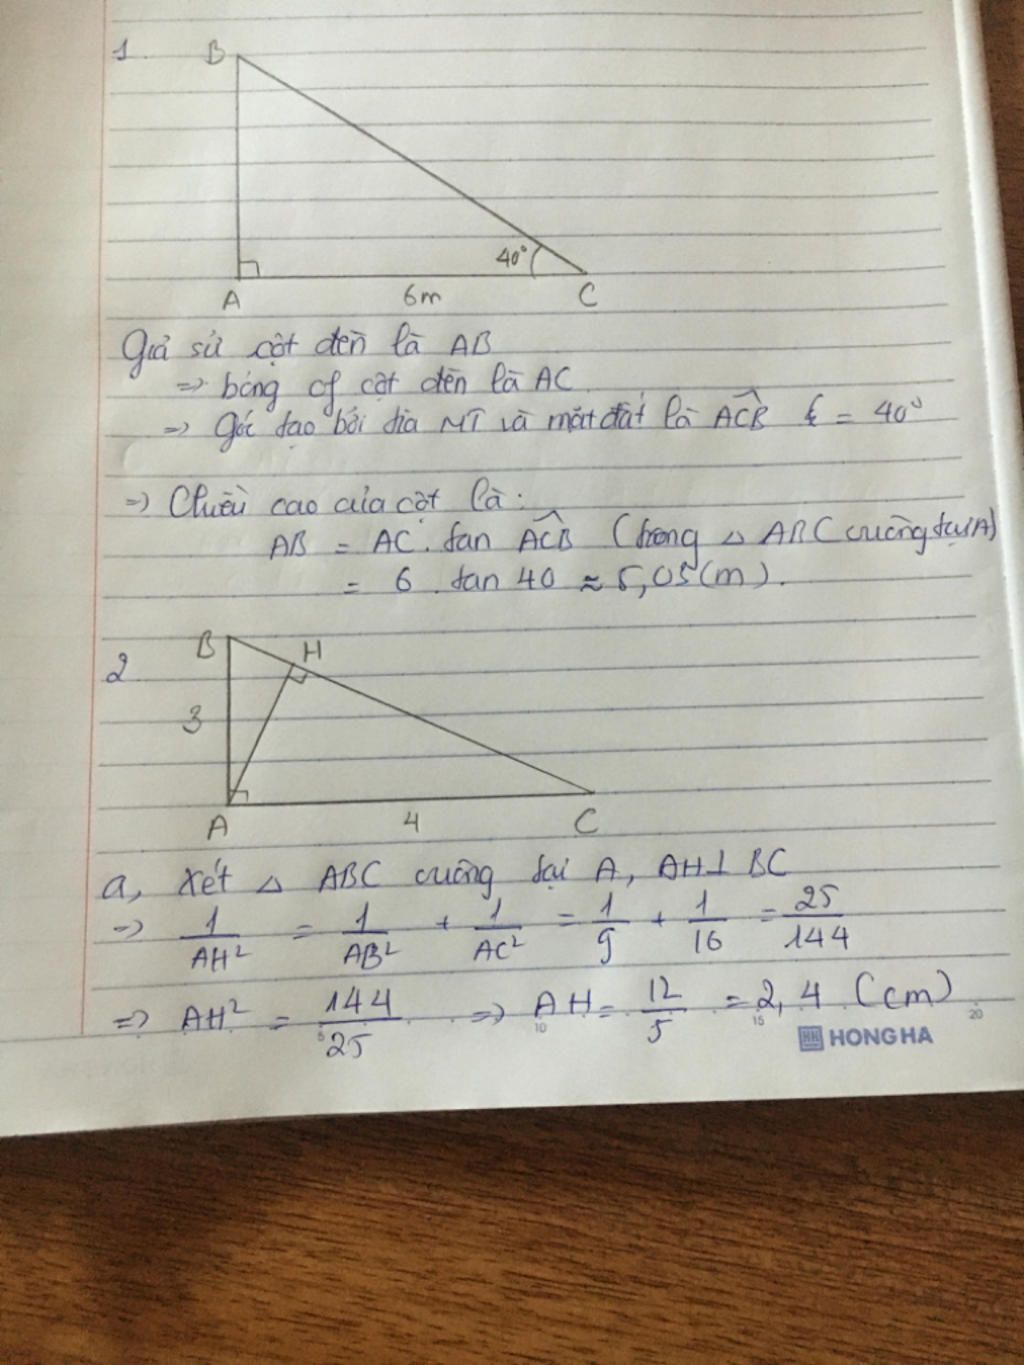 1.
B
40°
A
6m
C
Giả sử cột đèn là AB
=> bóng cột đèn là AC.
=> Góc tạo bởi tia MT và mặt đất là ACB = 40°
=> Chiều cao của cột là:
AB = AC. tan ACB (trong △ ABC vuông tại A)
= 6 . tan 40 ≈ 5,05(m).
2
B
H
3
A
4
C
a, Xét △ ABC vuông tại A, AH⊥ BC
=> 1/AH² = 1/AB² + 1/AC² = 1/9 + 1/16 = 25/144
=> AH² = 144/25 => AH = 12/5 = 2,4 (cm)
5 10 15 20
HH HONG HA